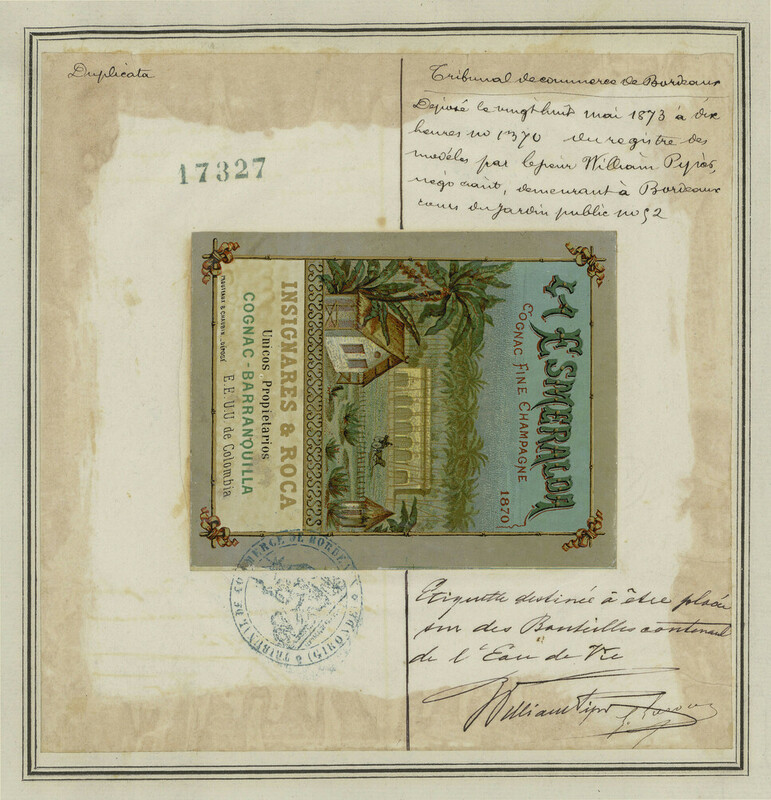 Duplicata
17327
Tribunal de commerce de Bordeaux
Déposé le vingt huit mai 1873 à dix
heures no 1370 du registre des
modèles par le sieur William
négociant, demeurant à Bordeaux
cours du Jardin public no 52
LA ESMERALDA
COGNAC FINE CHAMPAGNE
1870
INSIGNARES & ROCA
Unicos Propietarios
COGNAC-BARRANQUILLA
E.E.U.U. de Colombia
DÉPOSÉ
TRIBUNAL DE COMMERCE DE BORDEAUX (GIRONDE)
Etiquette destinée à être placée
sur des Bouteilles contenant
de l'Eau de Vie
William